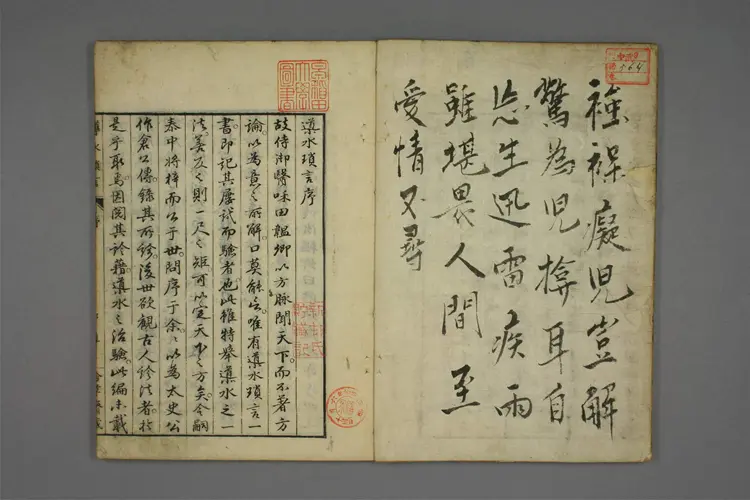 襁褓癡兒豈解
驚為兒揜耳自
忘生迅雷疾雨
雖堪畏人間至
愛情又尋
導水瑣言序
故侍御醫和田韞卿以方脈聞天下而不著方
論以為意之所解口莫能宣唯有導水瑣言一
書即記其屢試而驗者也此雖特舉導水之一
法善反之則一尺之矩可以定天下之方矣今嗣
泰中將梓而公于世問序于余余以為太史公
作倉公傳錄其所診後世欲觀古人診法者於
是乎取焉因閱其診籍導水之治驗此編未載